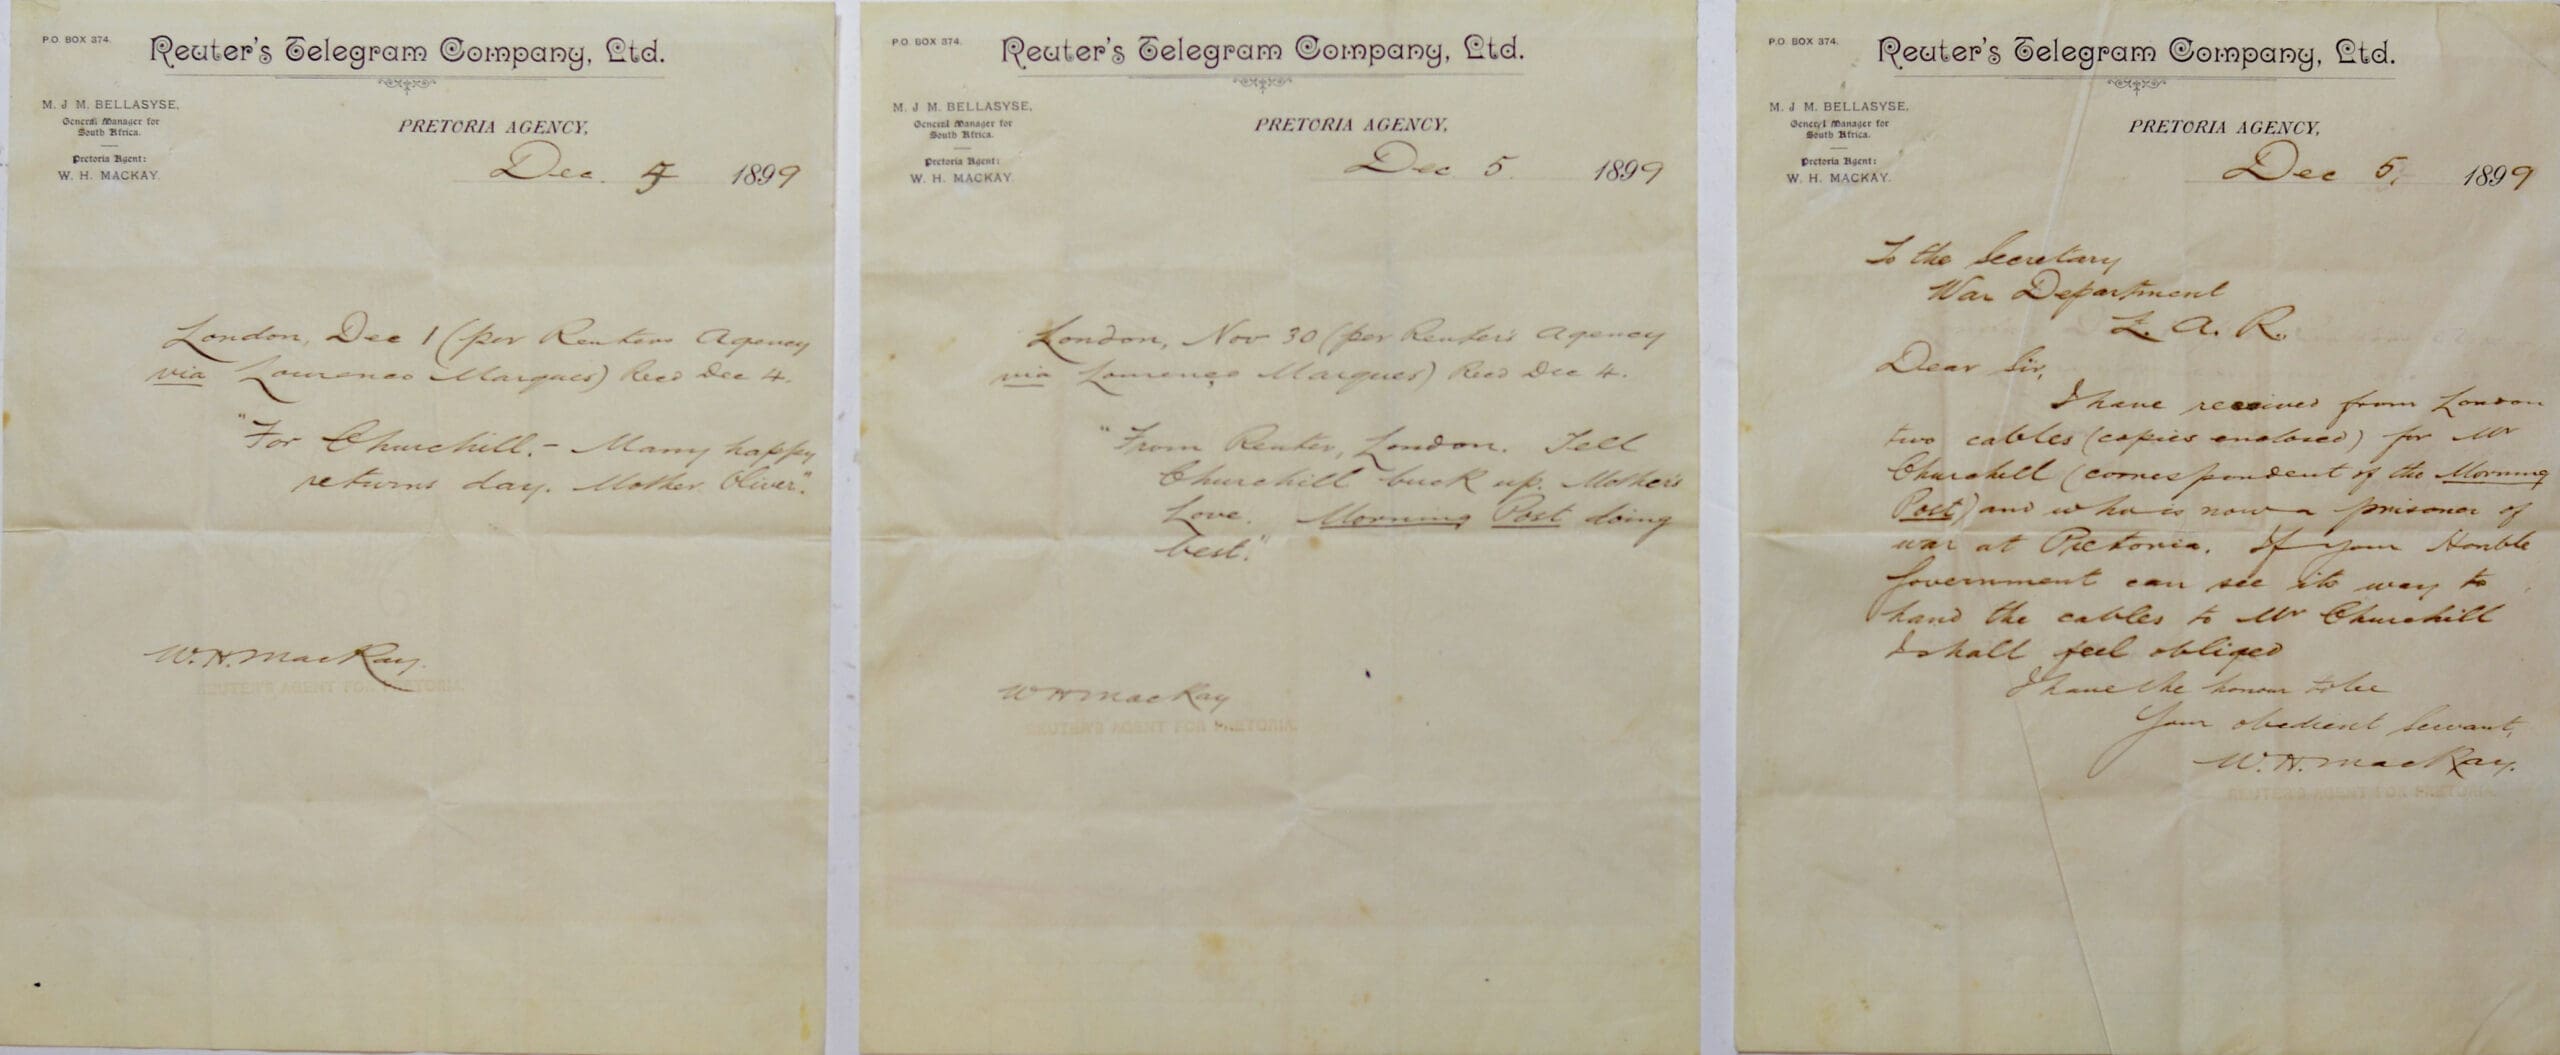 P.O. BOX 374.
Reuter's Telegram Company, Ltd.
M. J M. BELLASYSE,
General Manager for
South Africa.
Pretoria Agent:
W. H. MACKAY.
PRETORIA AGENCY,
Dec. 5 1899
London, Dec 1 (per Reuters Agency
via Lourenco Marques) Recd Dec 4.
"For Churchill. - Many happy
returns day. Mother. Oliver."
W. H. MacKay.
REUTER'S AGENT FOR PRETORIA.
P.O. BOX 374.
Reuter's Telegram Company, Ltd.
M. J M. BELLASYSE,
General Manager for
South Africa.
Pretoria Agent:
W. H. MACKAY.
PRETORIA AGENCY,
Dec 5. 1899
London, Nov 30 (per Reuter's Agency
via Lourenco Marques) Recd Dec 4.
"From Reuter, London. Tell
Churchill buck up. Mother's
Love. Morning Post doing
best."
W H MacKay
REUTER'S AGENT FOR PRETORIA.
P.O. BOX 374.
Reuter's Telegram Company, Ltd.
M. J M. BELLASYSE,
General Manager for
South Africa.
Pretoria Agent:
W. H. MACKAY.
PRETORIA AGENCY,
Dec 5, 1899
To the Secretary
War Department
Z. A. R.
Dear Sir,
I have received from London
two cables (copies enclosed) for Mr
Churchill (correspondent of the Morning
Post) and who is now a prisoner of
war at Pretoria. If your Honble
Government can see its way to
hand the cables to Mr Churchill
I shall feel obliged
I have the honour to be
Your obedient Servant,
W. H. MacKay.
REUTER'S AGENT FOR PRETORIA.